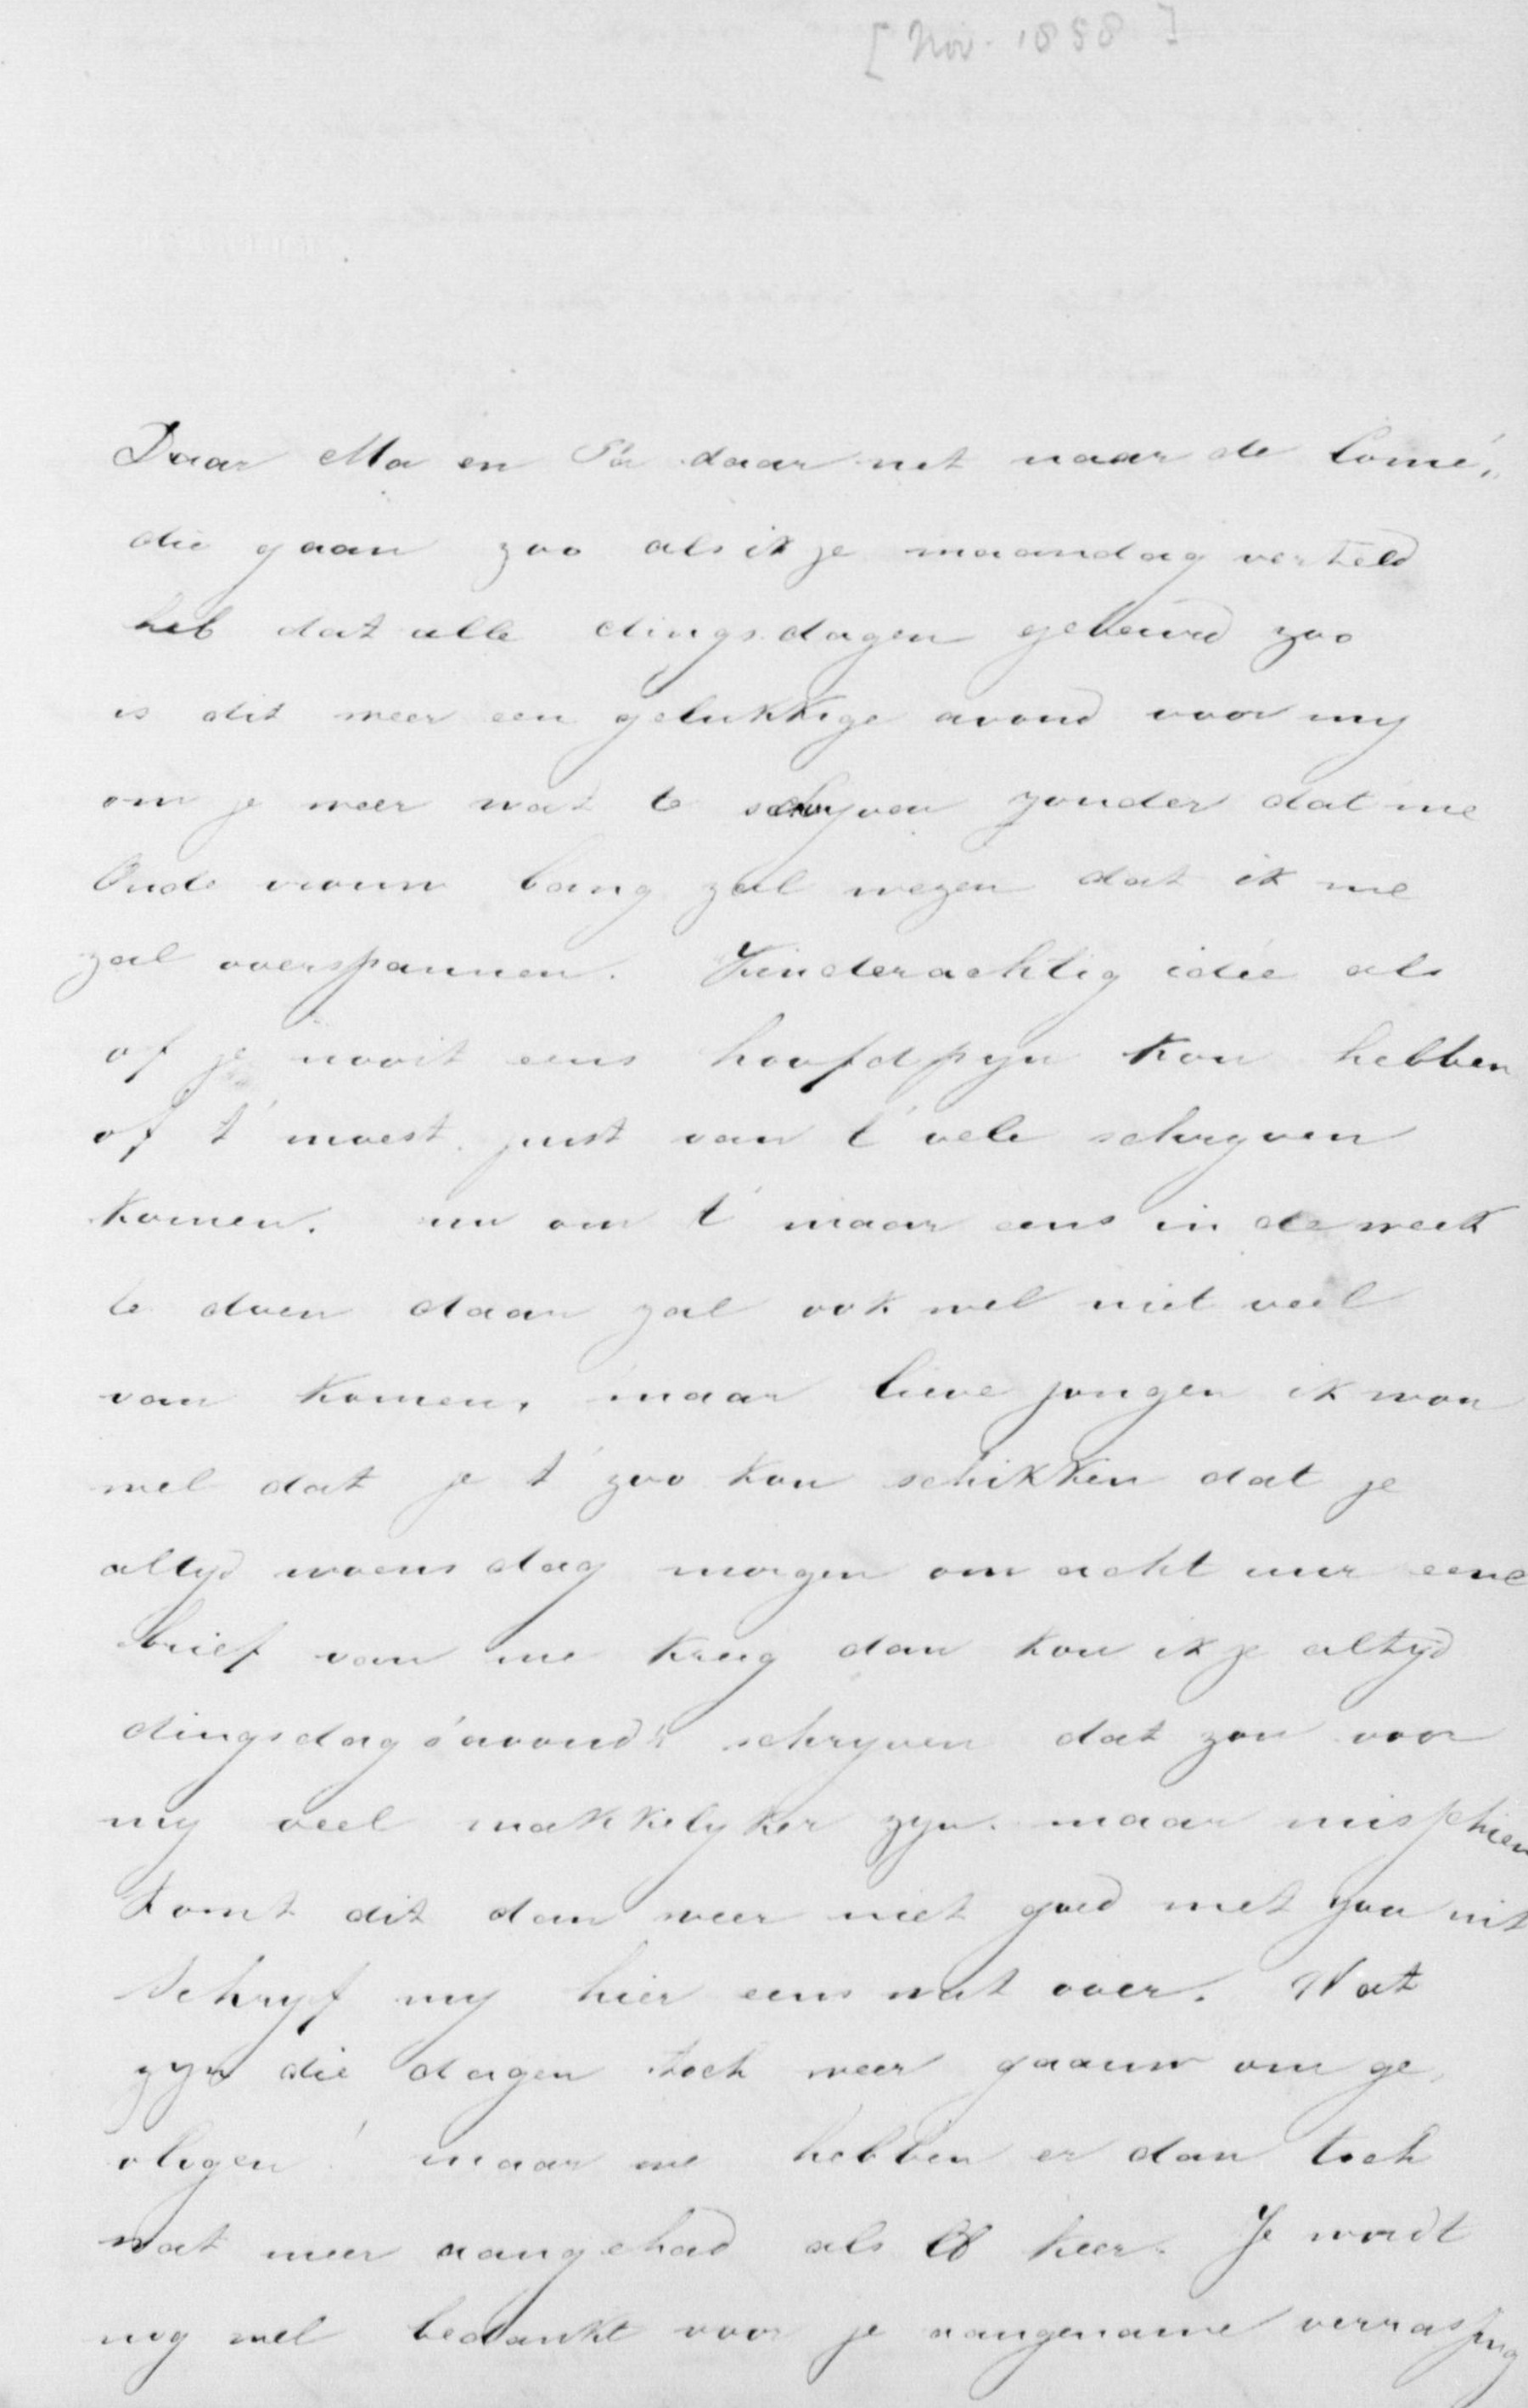 [Nov. 1858]
Daar Ma en Pa daar net naar de Comé„
die gaan zoo als ik je maandag verteld
heb dat alle dingsdagen gebeurd zoo
is dit weer een gelukkige avond voor my
om je weer wat te schryven zonder dat me
Oude vrouw bang zal wezen dat ik me
zal overspannen. Kinderachtig idée als
of je nooit eens hoofdpyn kon hebben
of t' moest juist van t' vele schryven
komen. nu om t' maar eens in de week
te doen daar zal ook wel niet veel
van komen, maar lieve jongen ik wou
wel dat je t' zoo kon schikken dat je
altyd woensdag morgen om acht uur eene
brief van me kreeg dan kon ik je altyd
dingsdag s'avonds schryven dat zou voor
my veel makkelyker zyn. maar misschien
komt dit dan weer niet goed met jou uit
schryf my hier eens wat over. Wat
zyn die dagen toch weer gaauw om ge„
vlogen! maar we hebben er dan toch
wat meer aangehad als keer. Je wordt
nog wel bedankt voor je aangename verrassing